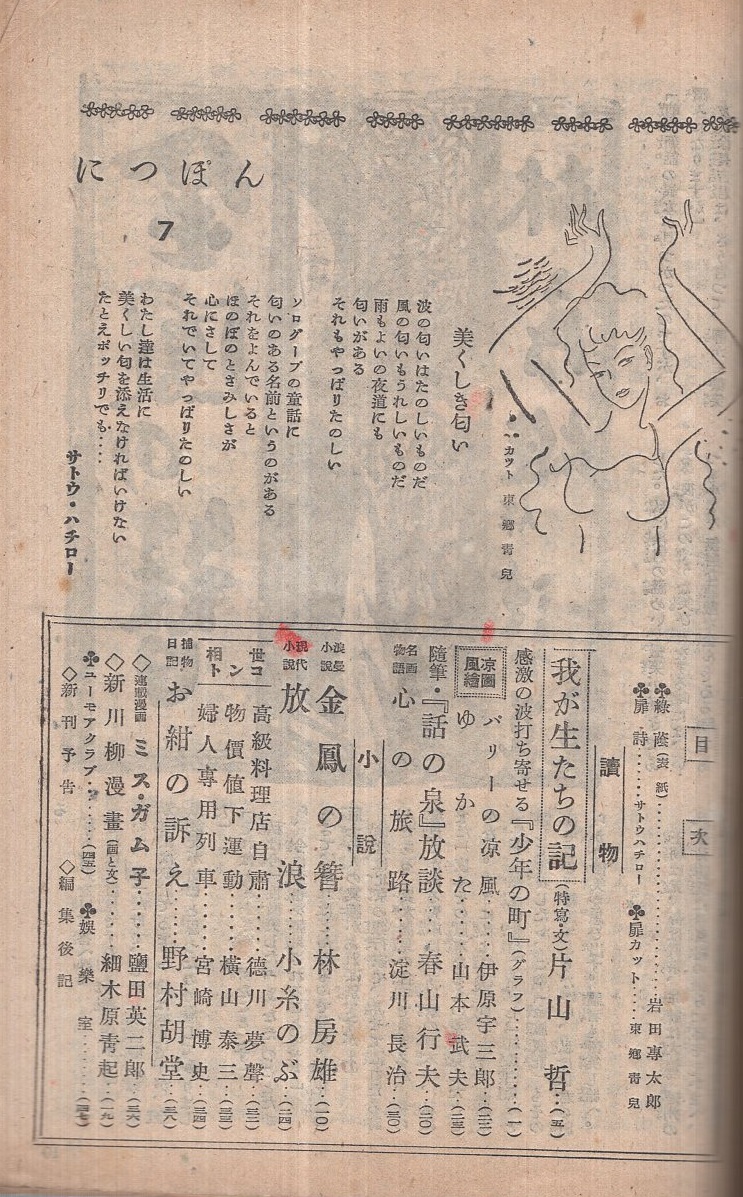 につぽん
7
カット 東郷青兒
美くしき匂い
波の匂いはたのしいものだ
風の匂いもうれしいものだ
雨もよいの夜道にも
匂いがある
それもやっぱりたのしい
ソログープの童話に
匂いのある名前というのがある
それをよんでいると
ほのぼのとさみしさが
心にさして
それでいてやっぱりたのしい
わたし達は生活に
美くしい匂を添えなければいけない
たとえポッチリでも‥‥
サトウ・ハチロー
目次
綠蔭(表紙)‥‥‥岩田專太郎
扉詩‥‥‥サトウハチロー 扉カット‥‥東鄕靑兒
讀物
我が生たちの記(特寫・文)片山哲‥(五)
感激の波打ち寄せる『少年の町』(グラフ)‥‥‥(一)
凉圖風繪
バリーの凉風‥‥‥伊原宇三郎‥(二二)
ゆかた‥‥‥山本武夫‥(二三)
隨筆・『話の泉』放談‥‥春山行夫‥(二〇)
名画物語 心の旅路‥‥‥淀川長治‥(三〇)
小說
浪曼小説 金鳳の簪 林房雄‥(一〇)
現代小説 放浪 小糸のぶ‥(二四)
世相コント
高級料理店自肅‥‥德川夢聲‥(三二)
物價値下運動‥‥横山泰三‥(三三)
婦人專用列車‥‥宮崎博史‥(三四)
捕物日記 お紺の訴え‥‥野村胡堂‥(三八)
◇連載漫画 ミス・ガム子‥‥‥鹽田英二郎‥(三六)
◇新川柳漫畫(画と文)‥‥‥細木原青起‥(一九)
ユーモアクラブ‥‥‥(四五) 娯樂室‥‥‥(四七)
◇新刊予告 ◇編集後記